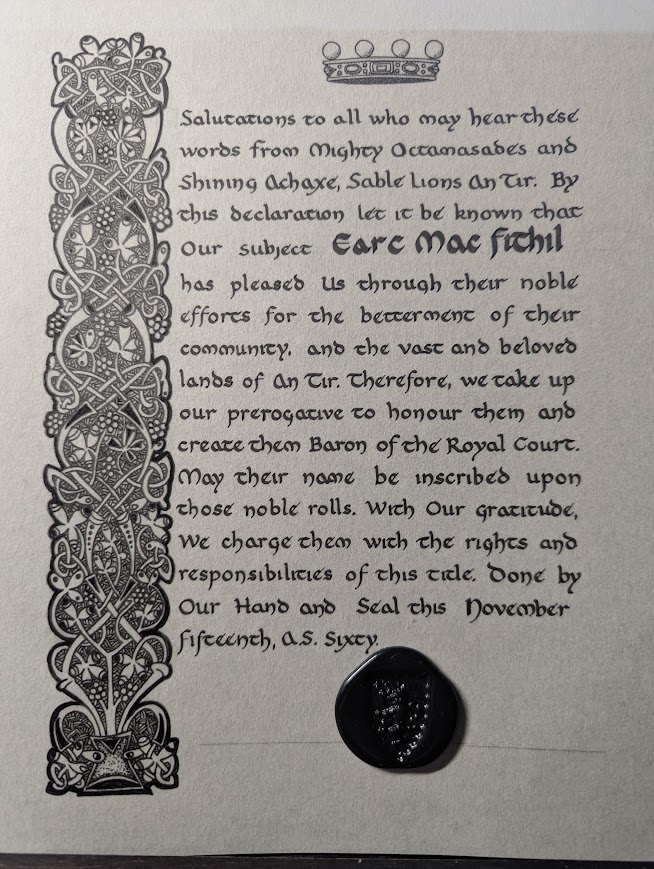 Salutations to all who may hear these
words from Mighty Octamasades and
Shining Achaxe, Sable Lions An Tir. By
this declaration let it be known that
Our subject Earc Mac Fithil
has pleased Us through their noble
efforts for the betterment of their
community, and the vast and beloved
lands of An Tir. Therefore, we take up
our prerogative to honour them and
create them Baron of the Royal Court.
May their name be inscribed upon
those noble rolls. With Our gratitude,
We charge them with the rights and
responsibilities of this title. Done by
Our Hand and Seal this November
Fifteenth, A.S. Sixty.